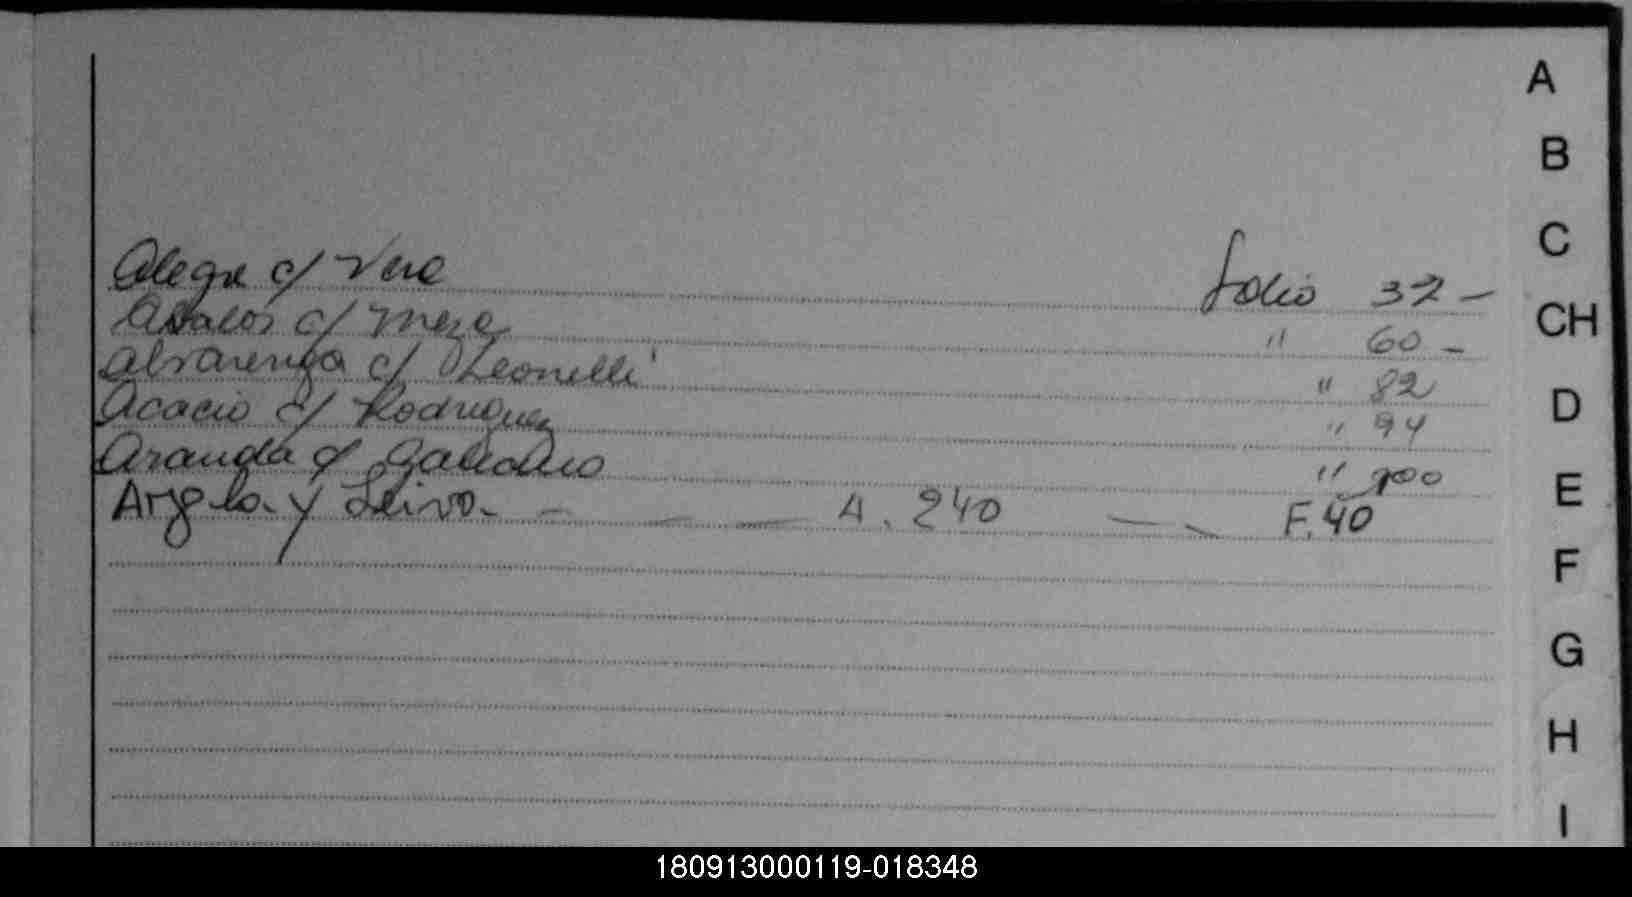 A
B
C
Alegre c/ Vera folio 32 -
CH
Avalos c/ Meza " 60 -
Alvarenga c/ Leonelli " 82
D
Acacio c/ Rodriguez " 94
Aranda c/ " 100
E
Argla y Leiva - - - A. 240 - - F. 40
F
G
H
I
180913000119-018348